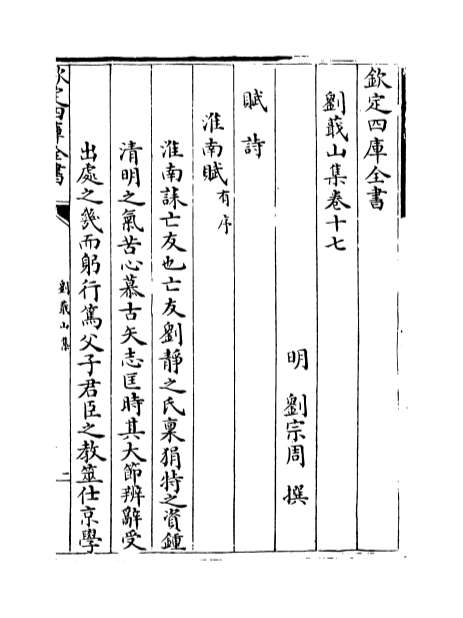 欽定四庫全書
劉蕺山集卷十七
明 劉宗周 撰
賦詩
淮南賦有序
淮南誄亡友也亡友劉靜之氏稟狷特之資鍾
清明之氣苦心慕古矢志匡時其大節辨辭受
出處之幾而躬行篤父子君臣之教筮仕京學
欽定四庫全書
劉蕺山集